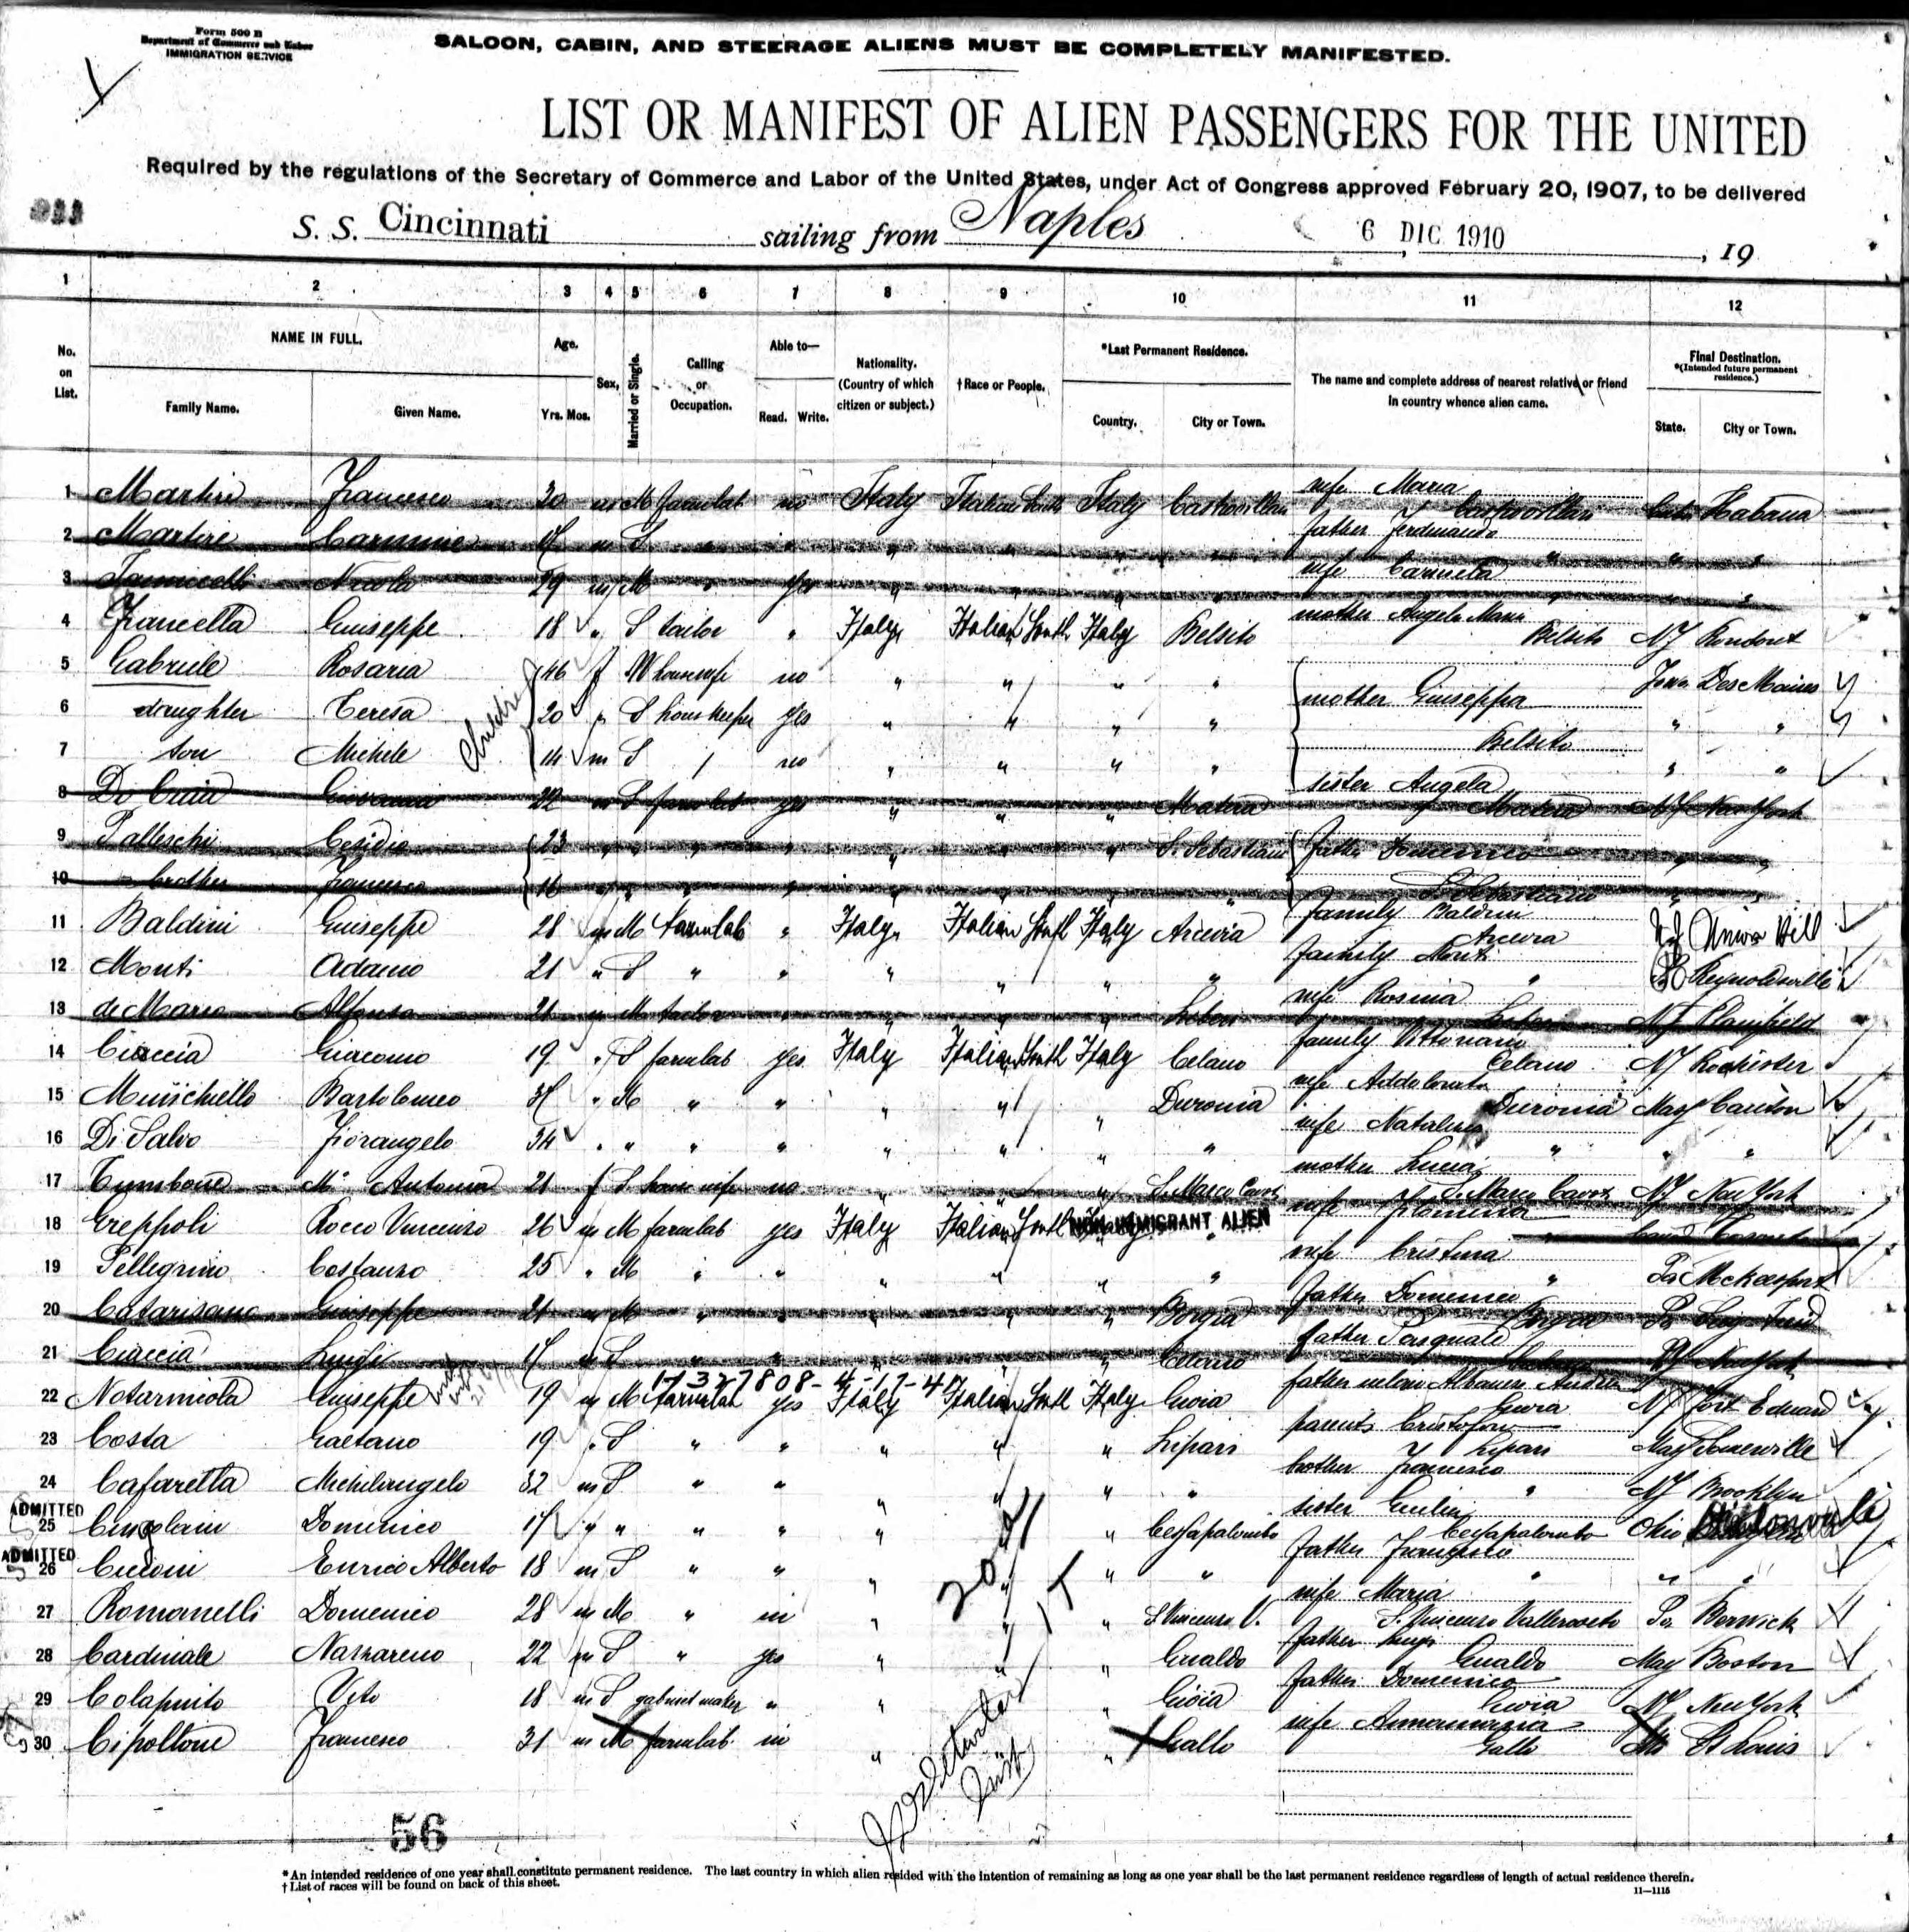 Form 500 B
Department of Commerce and Labor
IMMIGRATION SERVICE
SALOON, CABIN, AND STEERAGE ALIENS MUST BE COMPLETELY MANIFESTED.
LIST OR MANIFEST OF ALIEN PASSENGERS FOR THE UNITED
Required by the regulations of the Secretary of Commerce and Labor of the United States, under Act of Congress approved February 20, 1907, to be delivered
S. S. Cincinnati sailing from Naples 6 DIC 1910, 19
1 2 3 4 5 6 7 8 9 10 11 12
No. on List.
NAME IN FULL.
Family Name. Given Name.
Age.
Yrs. Mos.
Sex,
Married or Single.
Calling or Occupation.
Able to—
Read. Write.
Nationality.
(Country of which citizen or subject.)
†Race or People.
*Last Permanent Residence.
Country. City or Town.
The name and complete address of nearest relative or friend in country whence alien came.
Final Destination.
*(Intended future permanent residence.)
State. City or Town.
1 Martire Francesco 30 m M farmlab no Italy Italian South Italy Castrovillari wife Maria Castrovillari Cuba Habana
2 Martire Carmine m S " " " " " " father Ferdinando " " "
3 Nicola 29 m M " yes " " " " wife Carmela " " "
4 Francella Giuseppe 18 " S tailor " Italy Italian South Italy Belsito mother Angela Maria Belsito NY
5 Gabriele Rosaria 46 f W housewife no " " " " mother Giuseppa Iowa Des Moines
6 daughter Teresa 20 f S housekeeper yes " " " " Belsito " "
7 son Michele 14 m S no " " " " " "
8 22 m S farmlab yes " " " Matera sister Angela Matera NY New York
9 Palleschi Cesidio 23 " " " " " " " S. Sebastiano father Domenico " "
10 brother Francesco 16 " " " " " " " " S. Sebastiano " "
11 Baldini Giuseppe 28 m M farmlab " Italy Italian South Italy Arcevia family Baldini Arcevia NJ Union Hill
12 Monti Adamo 21 " S " " " " " " family Monti " Reynoldsville
13 de Mario Alfonso 21 m M tailor " " " " wife Rosina NJ Plainfield
14 Ciaccia Giacomo 19 " S farmlab yes Italy Italian South Italy Celano family Vittoriano Celano NY Rochester
15 Bartolomeo " M " " " " " Duronia wife Addolorata Duronia Mass Canton
16 Di Salvo Fiorangelo 34 " " " " " " " " wife Natalina " " "
17 Ma Antonia 21 f S housewife no " " " S. Marco Cavoti mother Lucia S. Marco Cavoti NY New York
18 Creppoli Rocco Vincenzo 26 m M farmlab yes Italy Italian South NON IMMIGRANT ALIEN " wife Toronto
19 Pellegrino Costanzo 25 " M " " " " " " wife Cristina " Pa McKeesport
20 Catarisano Giuseppe 21 m M " " " " " Borgia father Domenico Borgia Pa
21 Ciaccia Luigi m S " " " " " Celano father Pasquale Celano NY New York
1732 7808-4-17-41
22 Notarnicola Giuseppe 19 m M farmlab yes Italy Italian South Italy Gioia father inlaw Albanese Andrea Gioia NY Fort Edward
23 Costa Gaetano 19 " S " " " " " Lipari parents Cristoforo Lipari Mass Somerville
24 Cafarella Michelangelo 32 m S " " " " " " brother Francesco " NY Brooklyn
ADMITTED
25 Domenico " " " " " " Cessapalombo sister Giulia Cessapalombo Ohio
ADMITTED
26 Enrico Alberto 18 m S " " " " " " father Francesco " " "
27 Romanelli Domenico 28 m M " " " " S. Vincenzo V. wife Maria S. Vincenzo Valleroveto Pa Berwick
28 Cardinale Nazzareno 22 m S " yes " " " Gualdo father Luigi Gualdo Mass Boston
29 Colapinto Vito 18 m S gabinet maker " " " " Gioia father Domenico Gioia NY New York
30 Cipollone Francesco 31 m M farmlab " " " Gallo wife Annamaria Gallo St Louis
56
*An intended residence of one year shall constitute permanent residence. The last country in which alien resided with the intention of remaining as long as one year shall be the last permanent residence regardless of length of actual residence therein.
†List of races will be found on back of this sheet.
11—1115